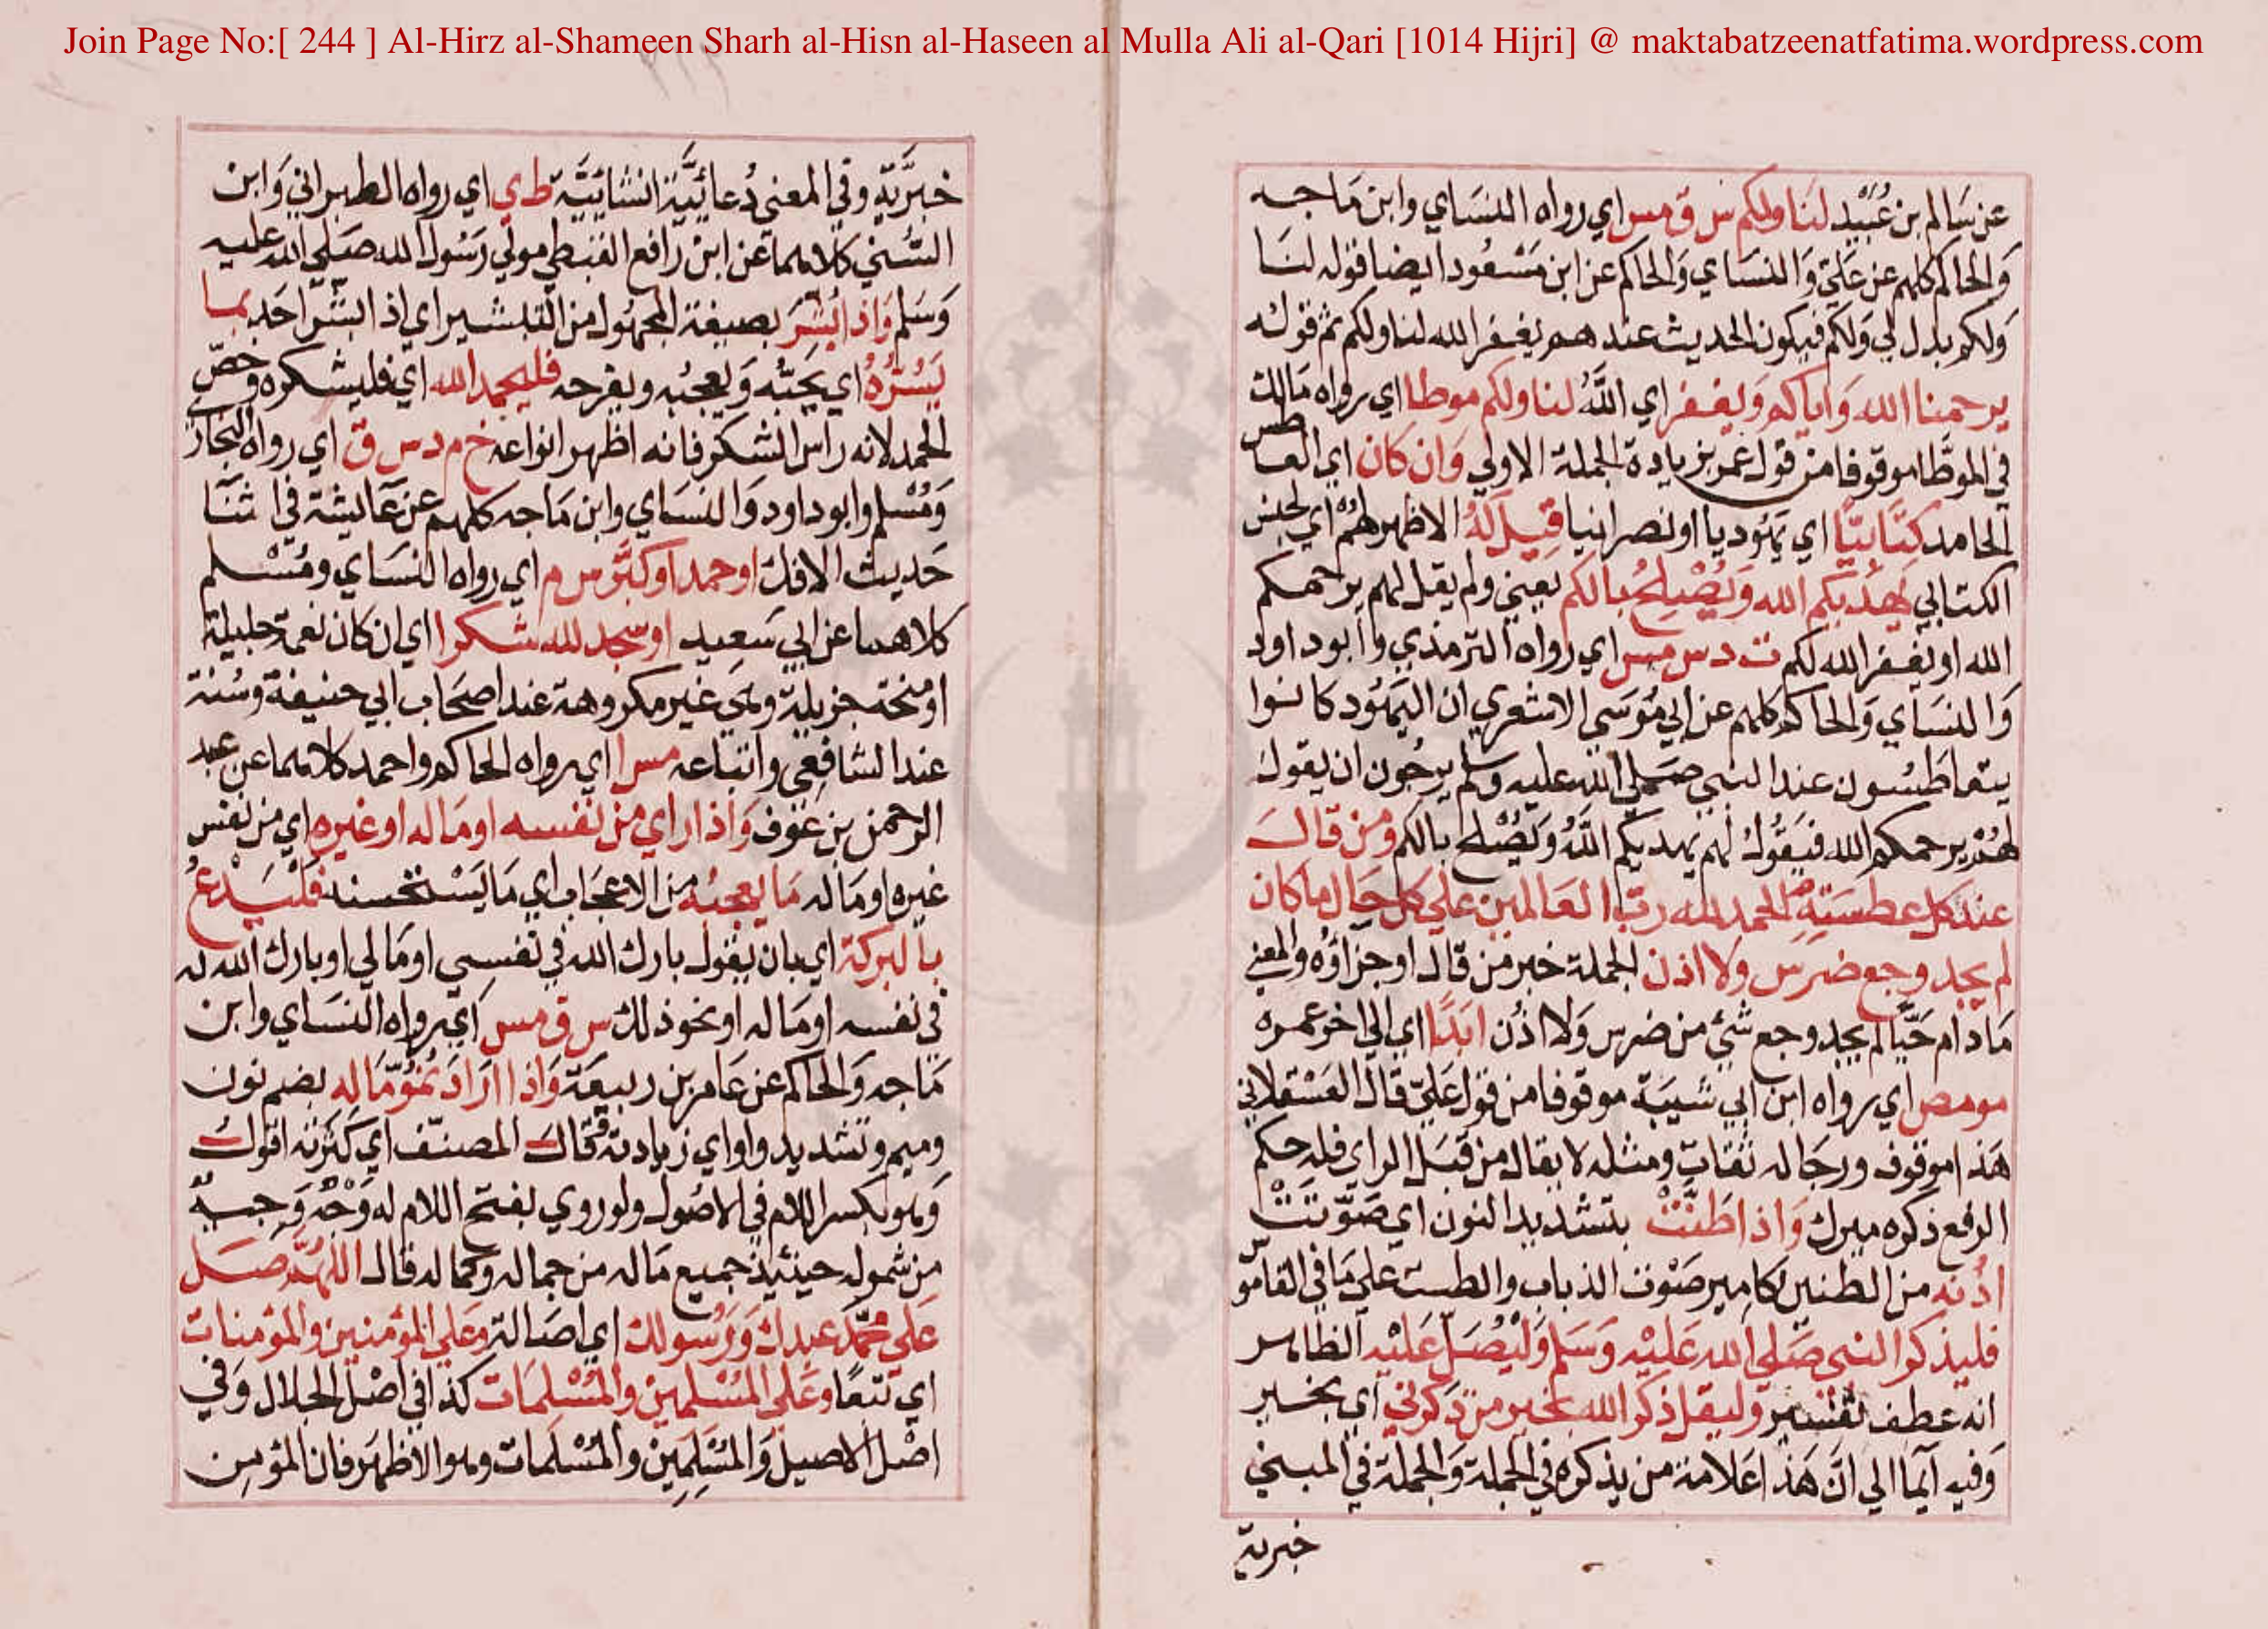 Join Page No:[ 244 ] Al-Hirz al-Shameen Sharh al-Hisn al-Haseen al Mulla Ali al-Qari [1014 Hijri] @ maktabatzeenatfatima.wordpress.com
عن سَالم بن عُبَيْد لنَا ولكم س ق مس اي رواه النسَاي وابن مَاجه
وَالحاكم كلهم عن عَلي وَالنسَاي وَالحاكم عن ابن مَسْعُود ايضا قوله لنَا
وَلكم بدل لي وَلكم فيكون الحديث عندهم يغفر الله لنا ولكم ثم قوله
يرحمنا الله وَاياكم وَيغفر اي اللَّهُ لنا ولكم موطا اي رواه مَالك
في الموطَّا موقوفا من قول عمر بزيادة الجملة الاولي وَان كان اي العاطس
الحامد كتَابيًّا اي يَهُوديا او نصرانيا قِيلَ لَهُ الاظهر لهُمْ اي لجنس
الكتابي يَهْديكم الله وَيُصْلِحُ بالكم يعني ولم يقل لهم يرحمكم
الله او يغفر الله لكم ت د س مس اي رواه الترمذي وابوداود
وَالنسَاي وَالحاكم كلهم عن ابي مُوسَي الاشعري ان اليَهُود كانوا
يتعاطسُون عند النبي صَلي الله عليه وسلم يرجُون ان يقول
لهُمْ يرحمكم الله فيَقُولُ لهم يهديكم اللَّهُ وَيُصْلح بالكم ومَن قال
عند كل عطسَةٍ الحمد لله رب العَالمين علي كل حَال ما كان
لم يجد وجع ضرس ولا اذن الجملة خبر من قال او جزاؤه والمعني
مَادام حَيًّا لم يجد وجع شئ من ضرس وَلا اذُن ابَدًا اي الي اخر عمره
مو مص اي رواه ابن ابي شَيبَة موقوفا من قول عَليّ قال العَسْقلاني
هَذا موقوف ورجَاله ثقات ومثله لا يقال من قبَل الراي فله حكم
الرفع ذكره ميرك وَاذا طَنَّتْ بتشديد النون اي صَوّتَتْ
اذُنه من الطنين كامير صَوْت الذباب والطست علي مَا في القامُوس
فليذكر النبي صَلي الله عَليْه وَسَلم وَليُصَلّ عَليْه الظاهر
انه عطف تفسير وليقل ذكر الله بخير من ذكرني اي بخير
وَفيه ايمَا الي انّ هَذا عَلامة من يذكره في الجملة وَالجملة في المبني
خبرية
خبَريّة وفي المعني دُعائيّة انشائيّة ط ي اي رواه الطبراني وَابن
السُّني كلاهما عن ابن رافع القبطي مولي رَسُول الله صَلي الله عليه
وَسَلم وَاذا بُشّرَ بصيغة المجهُول من التبشير اي اذا بشّر احَد بما
يَسُرُّهُ اي يحبّه وَيعجبُه ويفرحه فليحمد الله اي فليشكره وخصّ
الحمد لانه راس الشكر فانه اظهر انواعه خ م د س ق اي رواه البخاري
وَمُسْلم وابوداود وَالنسَاي وابن مَاجه كلهم عن عَايشة في اثنا
حَديث الافك او حمد او كبّر س م اي رواه النسَاي ومُسْلم
كلاهما عن ابي سَعيد او سجد لله شكرا اي ان كان نعمة جليلة
او منحة جزيلة وهي غير مكروهة عند اصحَاب ابي حنيفة وسُنة
عند الشافعي واتباعه مس ا اي رواه الحاكم واحمد كلاهما عن عبد
الرحمن بن عَوْف وَاذا راي من نفسه او مَاله او غيره اي من نفس
غيره او مَاله مَا يعجبُه من الاعجَاب اي مَا يَسْتحسنه فَليَدْعُ
بالبركة اي بان يقول بارك الله في نفسي او مَالي او بارك الله له
في نفسه او مَاله او نحو ذلك س ق مس اي رواه النسَاي وابن
مَاجه وَالحاكم عن عَامر بن ربيعَة وَاذا ارَادَ نمُوّ مَاله بضم نون
وميم وتشديد واو اي زيادته قال المصنّف اي كثرته اقول
وَهو بكسر اللام في الاصُول ولو روي بفتح اللام له وَجْهٌ وَجيه
من شموله حينئذ جميع مَاله من جماله وكماله قال اللهُمّ صَل
عَلي محمَّد عبدك وَرَسُولك اي اصَالة وعَلي المؤمنين والمؤمنات
اي تبَعًا وعَلي المُسْلمين والمُسْلمَات كذا في اصْل الجلال وَفي
اصْل الاصيل وَالمُسْلِمِيْن والمُسْلمَات وهو الاظهَر فان المؤمن